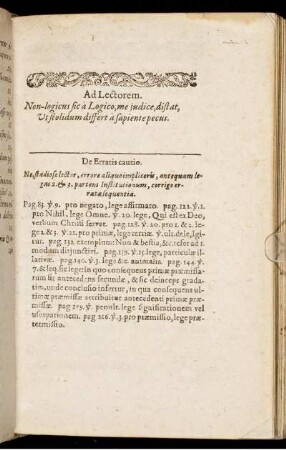 Ad Lectorem.
Non-logicus sic à Logico, me judice, distat,
Ut stolidum differt a sapiente pecus.
De Erratis cautio.
Ne, studiose lector, errore aliquo impliceris, antequam le-
gas 2. & 3. partem Institutionum, corrige er-
rata sequentia.
Pag. 85. ỳ. 9. pro negato, lege affirmato. pag. 122. ỳ. 1.
pro Nihil, lege Omne. ỳ. 20. lege, Qui est ex Deo,
verbum Christi servat. ỳ. 20. pro 1. & 2.
leges 1. & ỳ. 22. pro primæ, lege tertiæ. ỳ. ult. dele, igi-
tur. pag. 132. exemplum: Non & bestia, &c. refer ad 1.
modum disjunct. pag. 139. ỳ. 15. lege, particulæ illa-
tivæ. pag. 140. ỳ. 3. lege & animalia. pag. 144. ỳ.
7. & seq. sic lege: in quo consequens primæ præmissa-
rum sit antecedens secundæ, & sic deinceps grada-
tim, unde conclusio infertur, in qua consequens ul-
timæ præmissæ attribuitur antecedenti primæ præ-
missæ pag 215. ỳ. penult. lege significationem vel
usurpationem. pag 216. ỳ. 3. pro præmissio, lege præ-
termissio.